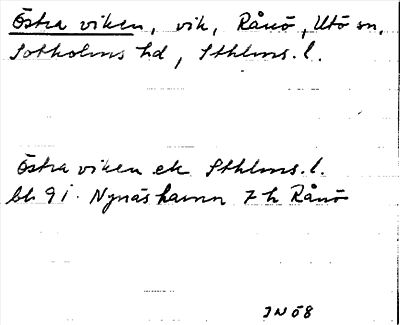 Östra viken, vik, Rånö, Utö sn,
Sotholms hd, Sthlms. l.
Östra viken ek Sthlms. l.
bl. 9 I. Nynäshamn 7 h Rånö
IN 68